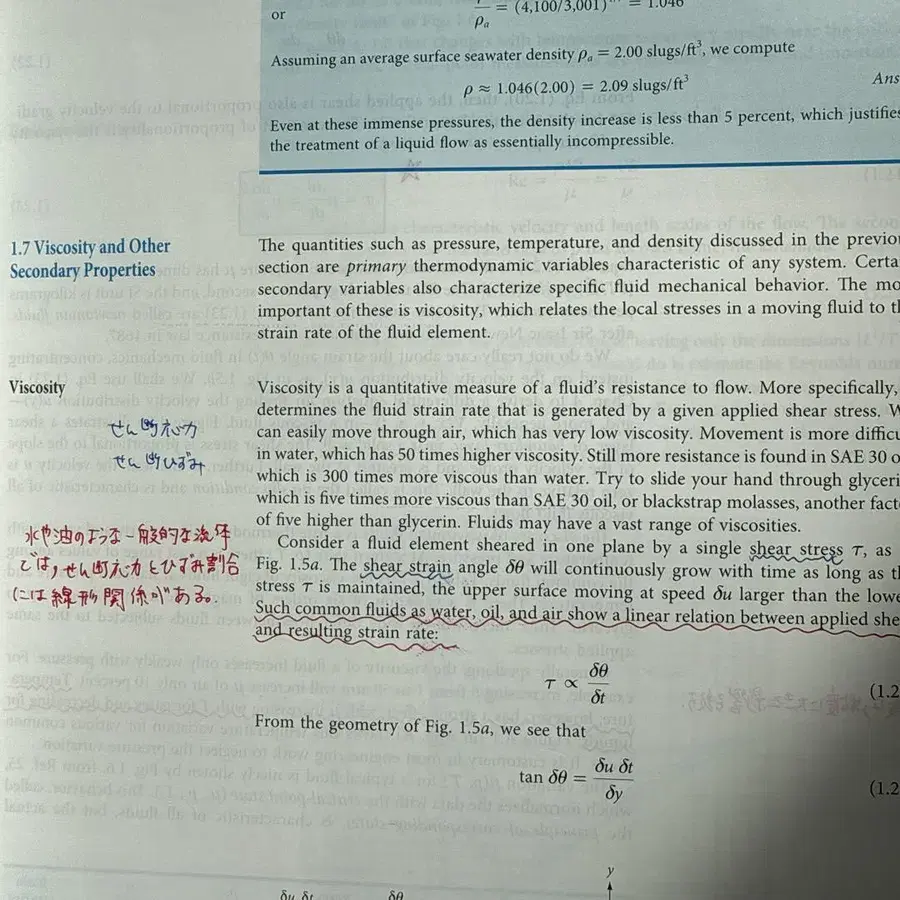 or
ρₐ = (4,100/3,001) = 1.046
Assuming an average surface seawater density ρₐ = 2.00 slugs/ft³, we compute
ρ ≈ 1.046(2.00) = 2.09 slugs/ft³
Ans
Even at these immense pressures, the density increase is less than 5 percent, which justifies
the treatment of a liquid flow as essentially incompressible.
1.7 Viscosity and Other
Secondary Properties
The quantities such as pressure, temperature, and density discussed in the previou
section are primary thermodynamic variables characteristic of any system. Certa
secondary variables also characterize specific fluid mechanical behavior. The mo
important of these is viscosity, which relates the local stresses in a moving fluid to th
strain rate of the fluid element.
Viscosity
Viscosity is a quantitative measure of a fluid's resistance to flow. More specifically,
determines the fluid strain rate that is generated by a given applied shear stress. W
can easily move through air, which has very low viscosity. Movement is more difficu
in water, which has 50 times higher viscosity. Still more resistance is found in SAE 30 o
which is 300 times more viscous than water. Try to slide your hand through glyceri
which is five times more viscous than SAE 30 oil, or blackstrap molasses, another facto
of five higher than glycerin. Fluids may have a vast range of viscosities.
せん断応力
せん断ひずみ
水や油のような一般的な流体
では,せん断応力とひずみ割合
には線形関係がある。
Consider a fluid element sheared in one plane by a single shear stress τ, as
Fig. 1.5a. The shear strain angle δθ will continuously grow with time as long as th
stress τ is maintained, the upper surface moving at speed δu larger than the lowe
Such common fluids as water, oil, and air show a linear relation between applied shea
and resulting strain rate:
τ ∝ δθ/δt
(1.2
From the geometry of Fig. 1.5a, we see that
tan δθ = δu δt/δy
(1.2
y
δu δt
δθ